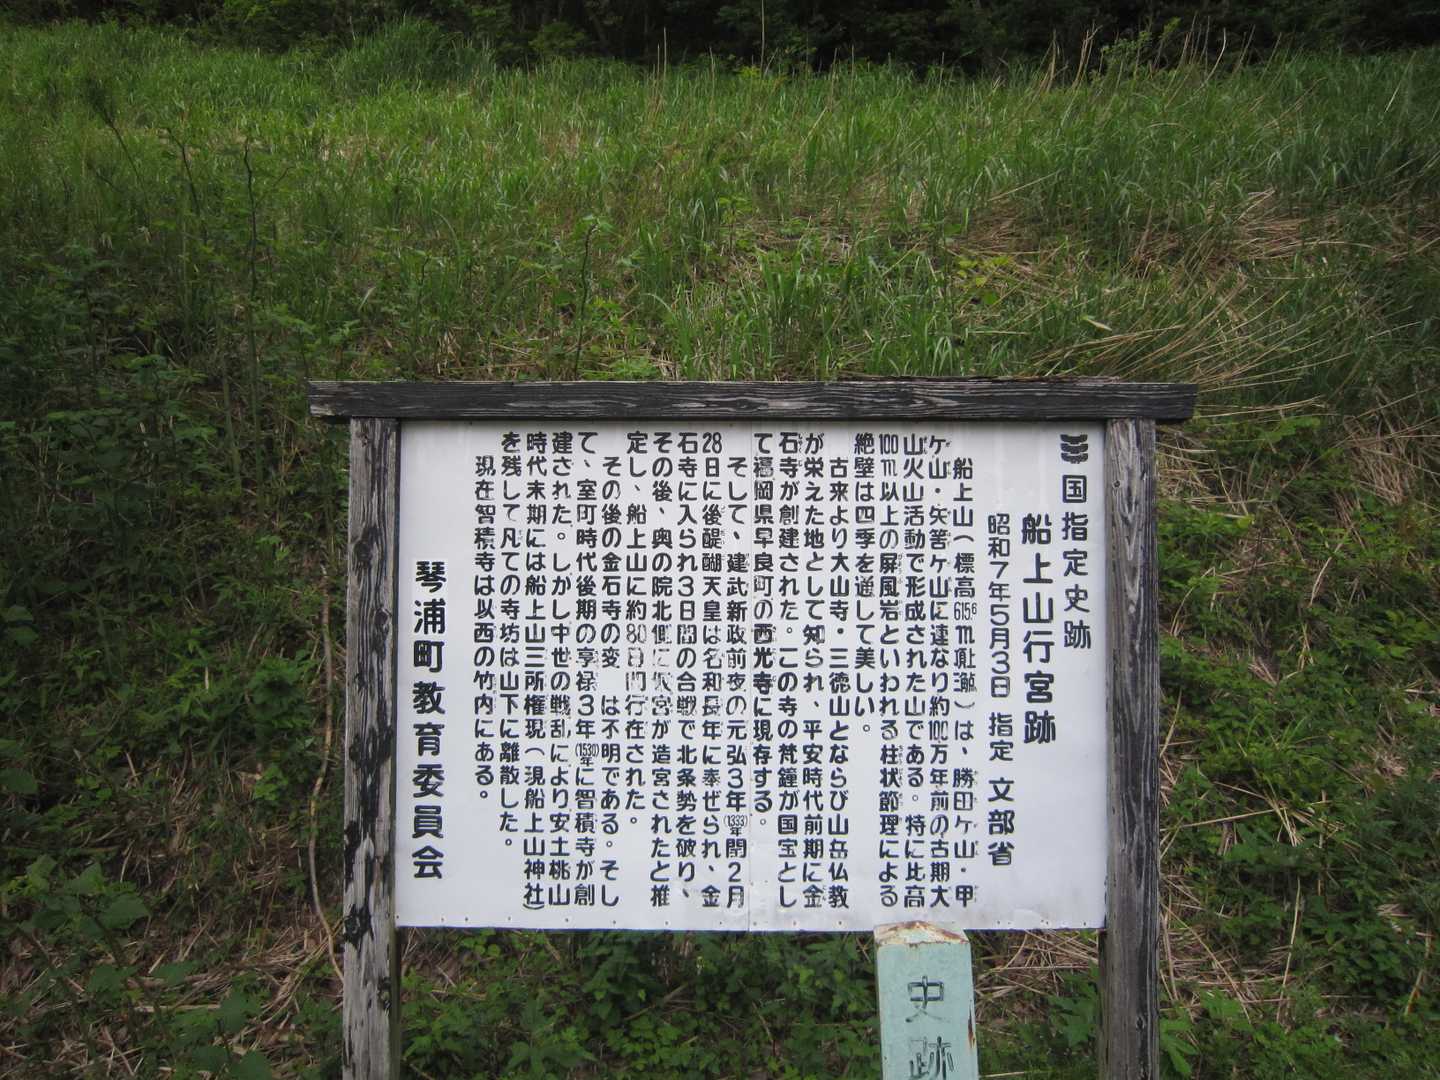 国指定史跡
船上山行宮跡
昭和7年5月3日 指定 文部省
船上山(標高615.6m)は、勝田ケ山・甲
ケ山・矢筈ケ山に連なり約100万年前の古期大
山火山活動で形成された山である。特に比高
100m以上の屏風岩といわれる柱状節理による
絶壁は四季を通して美しい。
古来より大山寺・三徳山とならび山岳仏教
が栄えた地として知られ、平安時代前期に金
石寺が創建された。この寺の梵鐘が国宝とし
て福岡県早良町の西光寺に現存する。
そして、建武新政前夜の元弘3年(1333年)閏2月
28日に後醍醐天皇は名和長年に奉ぜられ、金
石寺に入られ3日間の合戦で北条勢を破り、
その後、奥の院北側に仮宮が造営されたと推
定し、船上山に約80日間行在された。
その後の金石寺の変 は不明である。そし
て、室町時代後期の享禄3年(1530年)に智積寺が創
建された。しかし中世の戦乱により安土桃山
時代末期には船上山三所権現(現船上山神社)
を残して凡ての寺坊は山下に離散した。
現在智積寺は以西の竹内にある。
琴浦町教育委員会
史跡